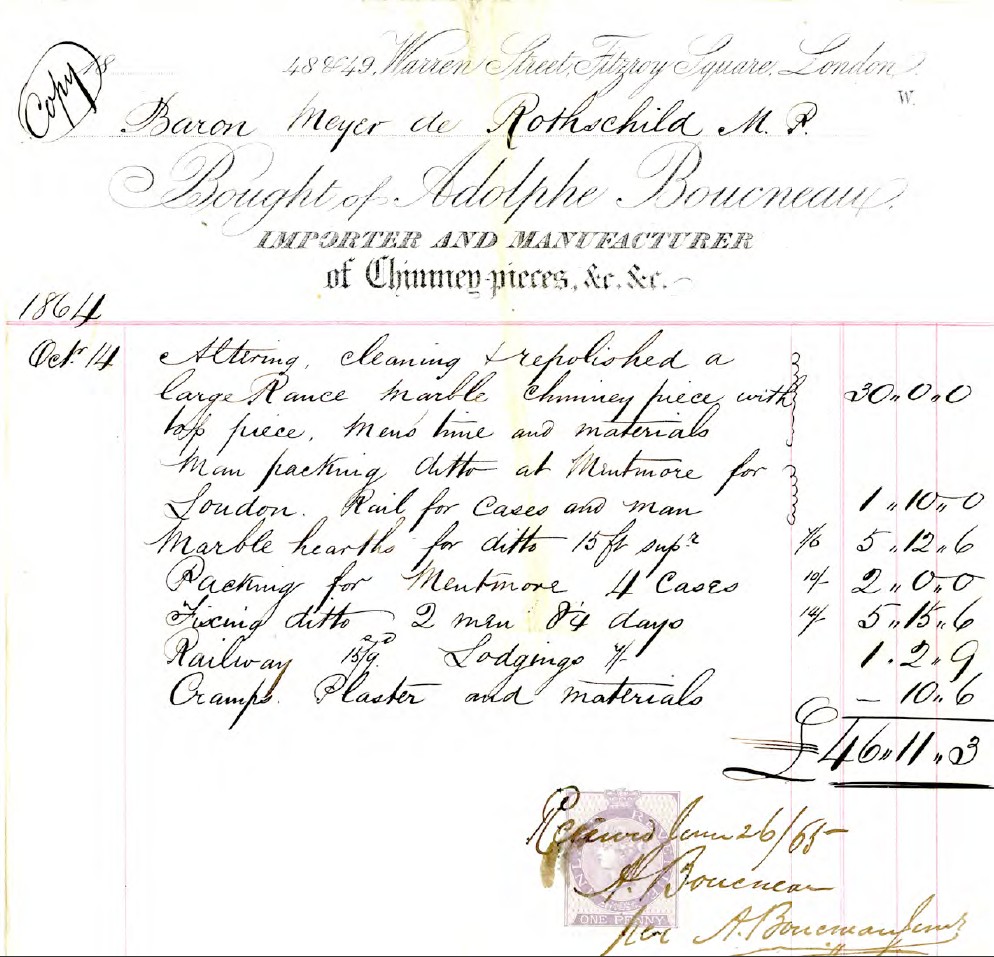 Copy
18 48 & 49, Warren Street, Fitzroy Square, London.
W.
Baron Meyer de Rothschild M. P.
Bought of Adolphe Boucneau.
IMPORTER AND MANUFACTURER
of Chimney-pieces, &c. &c.
1864
Octr. 14 Altering, cleaning & repolished a
large Rance Marble Chimney piece with 30 " 0 " 0
top piece, Mens time and materials
Man packing ditto at Mentmore for
London. Rail for Cases and man 1 " 10 " 0
Marble hearths for ditto 15 ft supr. 7/6 5 " 12 " 6
Packing for Mentmore 4 Cases 10/- 2 " 0 " 0
Fixing ditto 2 men days 14/- 5 " 15 " 6
Railway 15s/9d. Lodgings 7/- 1 . 2 " 9
Cramps. Plaster and materials – 10 " 6
£46 " 11 " 3
Received 26/65
A. Boucneau
INLAND REVENUE
ONE PENNY
per A. Boucneau Junr